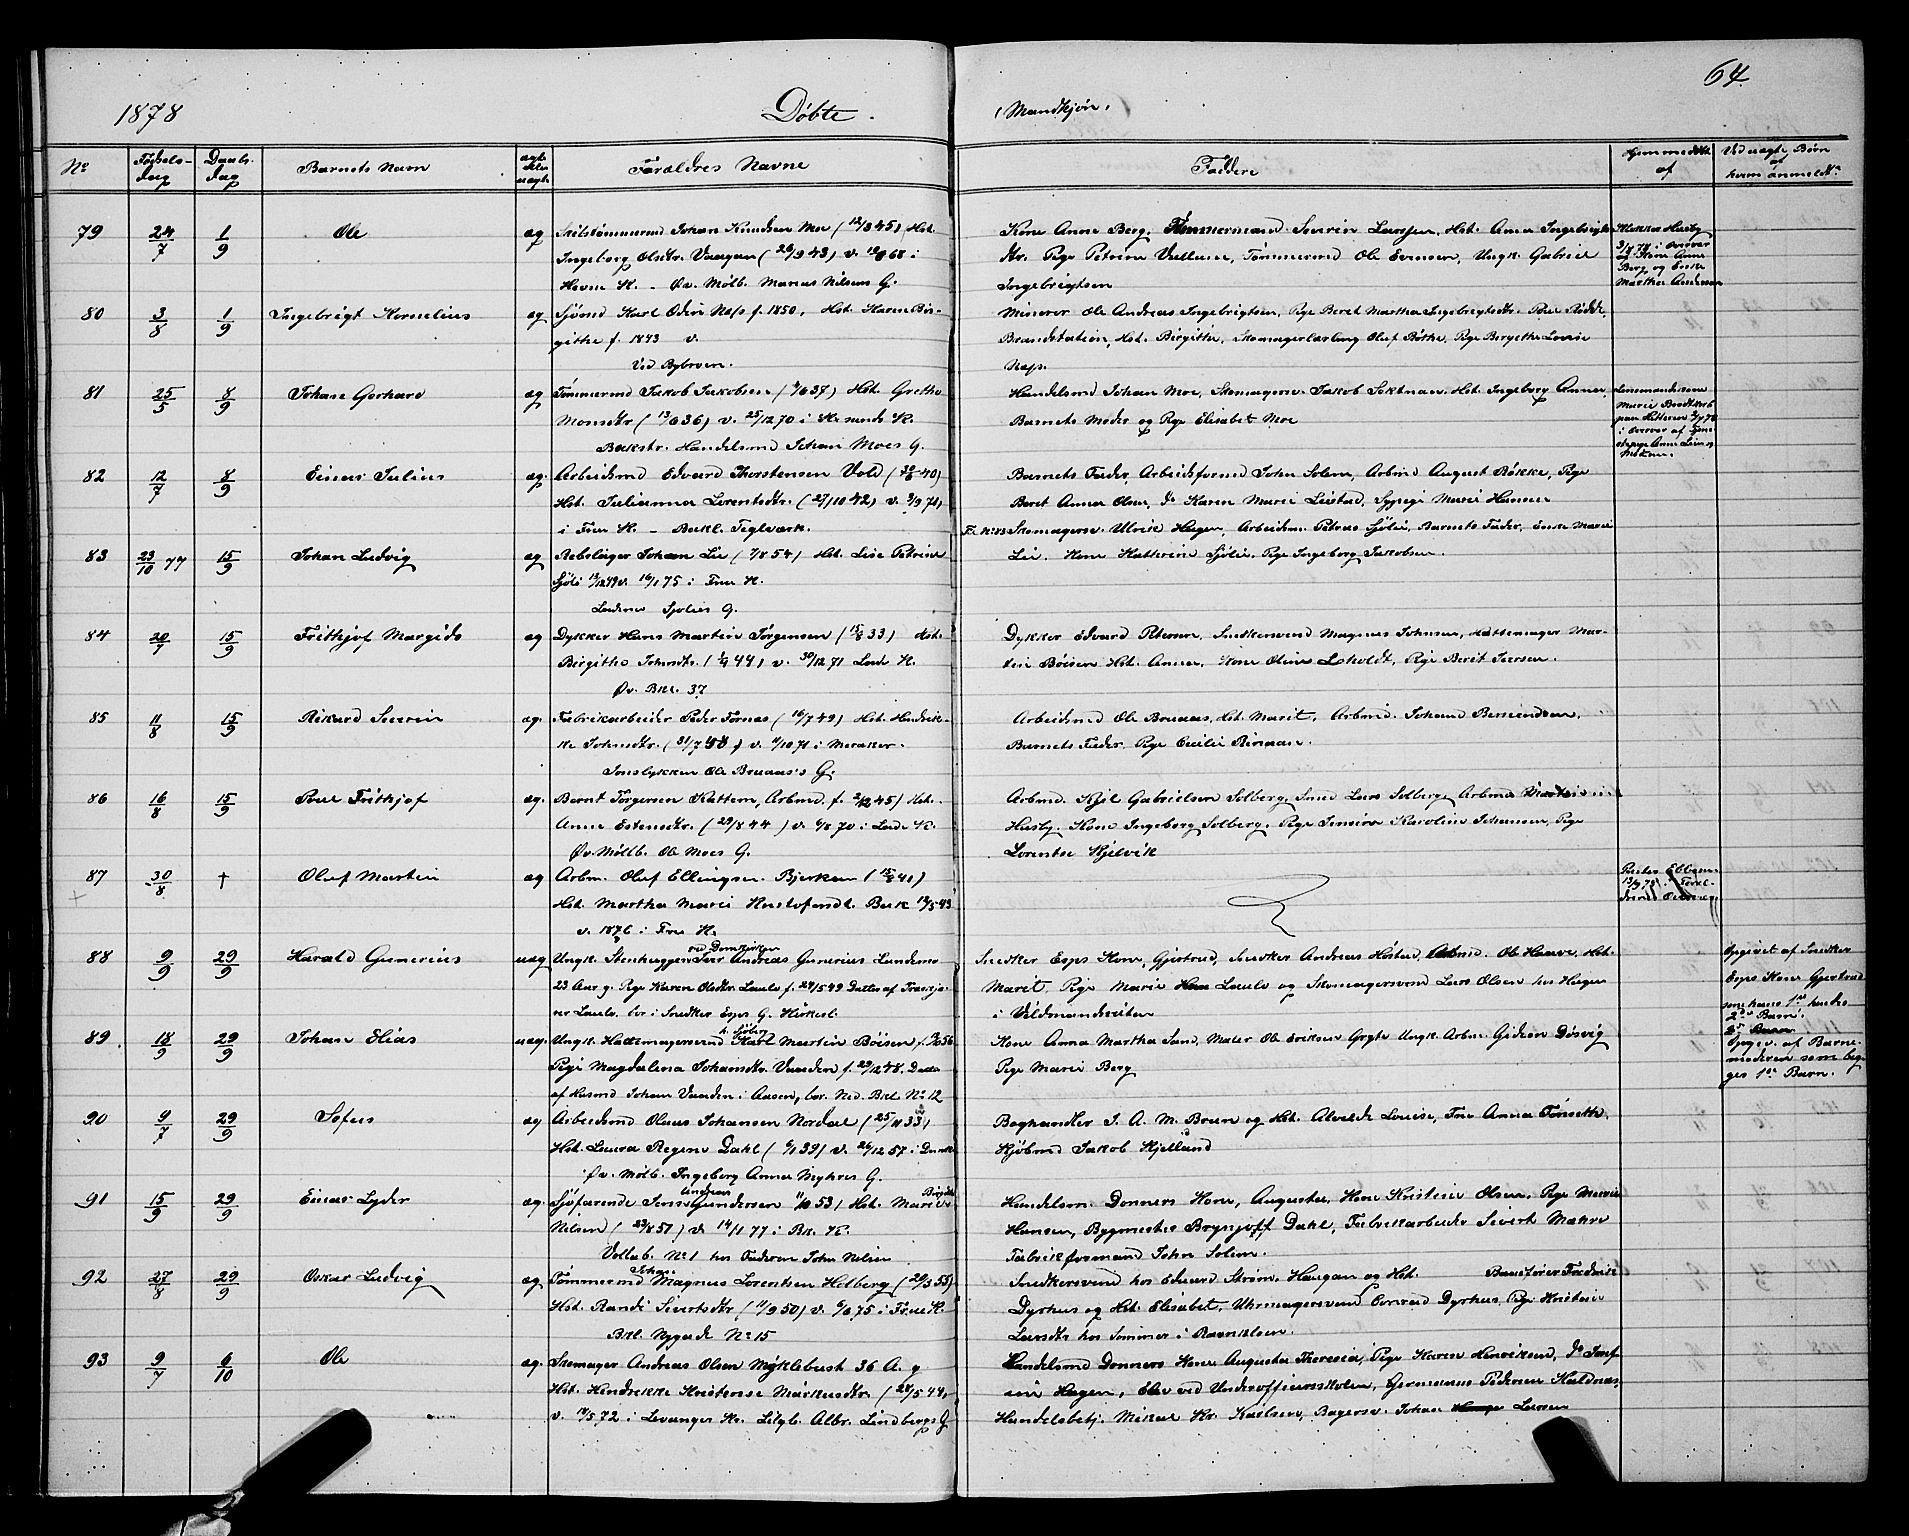 64.
1878 Døbte. (Mandkjøn)
No Fødsels-dag Daabs-dag Barnets Navn ægte eller uægte Forældres Navne Faddere Hjemmedøbt af Ved uægte Børn af hvem anmeldt
79 24/7 1/9 Ole æg Johan Knudsen Moe (12/3 45) Hst.
Ingeborg Olsdtr. Vaagan (26/9 43) v. 68 i
Hevne K. – Øv. Mølb. Marius Nilsens G.
Kone Anne Berg, Tømmermand Severin Larssen, Hst. Anna Ingebrigts-
dtr. Pige Petrine Vullum, Tømmermd Ole Evensen, Ungk. Gabriel
Ingebrigtsen
Klokker Husby
Kone Anne
Berg og Enke
Martha Andersen
80 3/8 1/9 Ingebrigt Kornelius æg Sjømd Karl Odin Næss f. 1850, Hst. Karen Bir-
githe f. 1843 v.
Ved Bybroen.
Minerer Ole Andreas Ingebrigtsen, Pige Beret Martha Ingebrigtsdtr. Rødde,
Brandstation, Hst. Birgitte, Skomagerlærling Oluf Bøthe, Pige Bergethe Lovise
Næss.
81 25/5 8/9 Johan Gerhard æg Tømmermd Jakob Jakobsen (37) Hst. Grethe
Monsdtr (13/6 36) v. 25/12 70 i Kr.sunds K.
Bakstr. Handelsmd Johan Moes G.
Handelsmd Johan Moe, Skomagersv. Jakob Hst. Ingeborg Anna,
Barnets Moder og Pige Elisabet Moe
Marie
paa Hitteren
82 12/7 8/9 Einar Julius æg Arbeidsmd Edvard Thorstensen Vold (40)
Hst. Julianna Lorentsdtr. (27/10 42) v. 3/9 71
i Frue K. – Bakl. Teglværk.
Barnets Fader, Arbeidsformd John Solem, Arbmd August Bøkke, Pige
Beret Anna Olsen, do Karen Marie Leistad, Sypige Marie Hansen
83 23/10 77 15/9 Johan Ludvig æg Rebslager Johan Lie (7/8 54) Hst. Lise Petrine
Sjøli v. 16/1 75 i Frue K.
Lademo Sjølies G.
Skomagersv. Ulrik Hagen, Arbeidsm. Petrus Sjøli, Barnets Fader, Enke Marie
Lie. Kone Kathrine Sjøli, Pige Ingeborg Jakobsen.
84 20/7 15/9 Frithjof Margido æg Dykker Hans Martin Jørgensen (33) Hst.
Birgitha Johnsdtr. (44) v. 30/12 71 Lade K.
Øv. Bkl. 37
Dykker Edvard Petersen, Snedkersvend Magnus Johnsen, Hattemager Mar-
tin Bøisen Hst. Anna, Kone Oline Leholdt, Pige Berit Iversen.
85 11/8 15/9 Rikard Severin æg. Fabrikarbeider Peder Fornas (16/7 49) Hst. Hendrik-
ke Johnsdtr. (31/7) v. 11/10 71 i Meraker.
Ole Bruaas's G.
Arbeidsmd Ole Bruaas, Hst. Marit, Arbmd. Johan Berntsen,
Barnets Fader, Pige Cecilie
86 16/8 15/9 Povel Frithjof æg. Bernt Jørgensen Kattem, Arbmd. f. 45) Hst.
Anne Estensdtr. (29/8 44) v. 70 i Lade K.
Øv. Møllb. Ole Moes G.
Arbmd. Kjel Gabrielsen Solberg, Smed Lars Solberg, Arbmd Martin
Husby. Kone Ingeborg Solberg. Pige Karoline Johansen, Pige
Lorentse Kjelvik
87 30/8 † Oluf Martin æg Arbm. Oluf Ellingsen Bjerkan (41)
Hst. Martha Marie Kristofersdt. Bak 43
v. 1876 i Frue K.
88 9/9 29/9 Harald Gunerius uæg Ungk. Stenhugger ved Domkirken Iver Andreas Gunerius Lundemo
23 Aar g. Pige Karen Olsdtr Laulo f. 29/5 49 Datter af
Laulo, bor i Snedker Esps G.
Snedker Esps Kone, Gjertrud, Snedker Andreas Høstad, Arbmd. Ole Haave, Hst.
Marit, Pige Marie Laulo og Skomagersvend Lars Olsen hos Hagen
i Vildmandveiten
Opgivet af Snedker
Esps Kone Gjertrud
som hans 1ste hendes
2det Barn.
89 18/9 29/9 Johan Elias uæg. Ungk. Hattemagersvend h. Sjøberg Karl Martin Bøisen f. 56
Pige Magdalena Johansdtr. Vaaden f. 29/12 48. Datter
af Husmd Johan Vaaden i Aasen, bor Ned. Bkl No 12
Kone Anna Martha Sand, Maler Ole Eriksen Grytte Ungk. Arbm. Gideon Døsvig
Pige Marie Berg
Opgiv. af Barne-
moderen som beg-
ges 1ste Barn.
90 9/7 29/9 Sofus æg Arbeidsmd Olaus Johansen Nordal (25/11 33)
Hst. Laura Regine Dahl (39) v. 26/12 57 i Domk
Øv. Mølb. Ingeborg Anna Myhres G.
Boghandler J. A. M. Brun og Hst. Alvilde Louise, Frue Anna Forseth,
Kjøbmd Jakob Kjelland
91 15/9 29/9 Einar Lyder æg. Sjøfarende Jens Andreas Gundersen 53) Hst. Marie Birgithe
Nilsen (23/8 57) v. 14/1 77 i Bk. K.
Vollab. No 1 hos Faderen John Nilsen
Handelsm. Donners Kone, Augusta, Kone Kristine Olsen, Pige Marie
Hansen, Bygmester Brynjolf Dahl, Fabrikarbeider Sivert Mæhre
Fabrikformand John Solem.
92 27/8 29/9 Oskar Ludvig æg Tømmermd Johan Magnus Lorentsen Holberg (20/3 53)
Hst. Randi Sivertsdtr (11/9 50) v. 75 i Frue K.
Bkl. Nygade No 15
Snedkersvend hos Edvard Strøm, Haugan og Hst. Banefører Fredrik
Dyrhus og Hst. Elisabet, Uhrmagersvend Conrad Dyrhus, Pige Kristine
Larsdtr hos Sommer i
93 9/7 6/10 Ole æg. Skomager Andreas Olsen Myklebust 36 A. g
Hst. Hendrikke Kristense Markusdtr. (28/5 44)
v. 14/5 72 i Levanger K. Lilgb. Albr. Lindbergs G
Handelsmd Donners Kone Augusta Theresia, Pige Karen Henriksen, do Josef-
ine Hagen, Elev ved Underofficersskolen, Germanus Pedersen Kaldnæs,
Handelsbetj. Mikal Kr. Karlsen, Bagersv. Johan Larsen